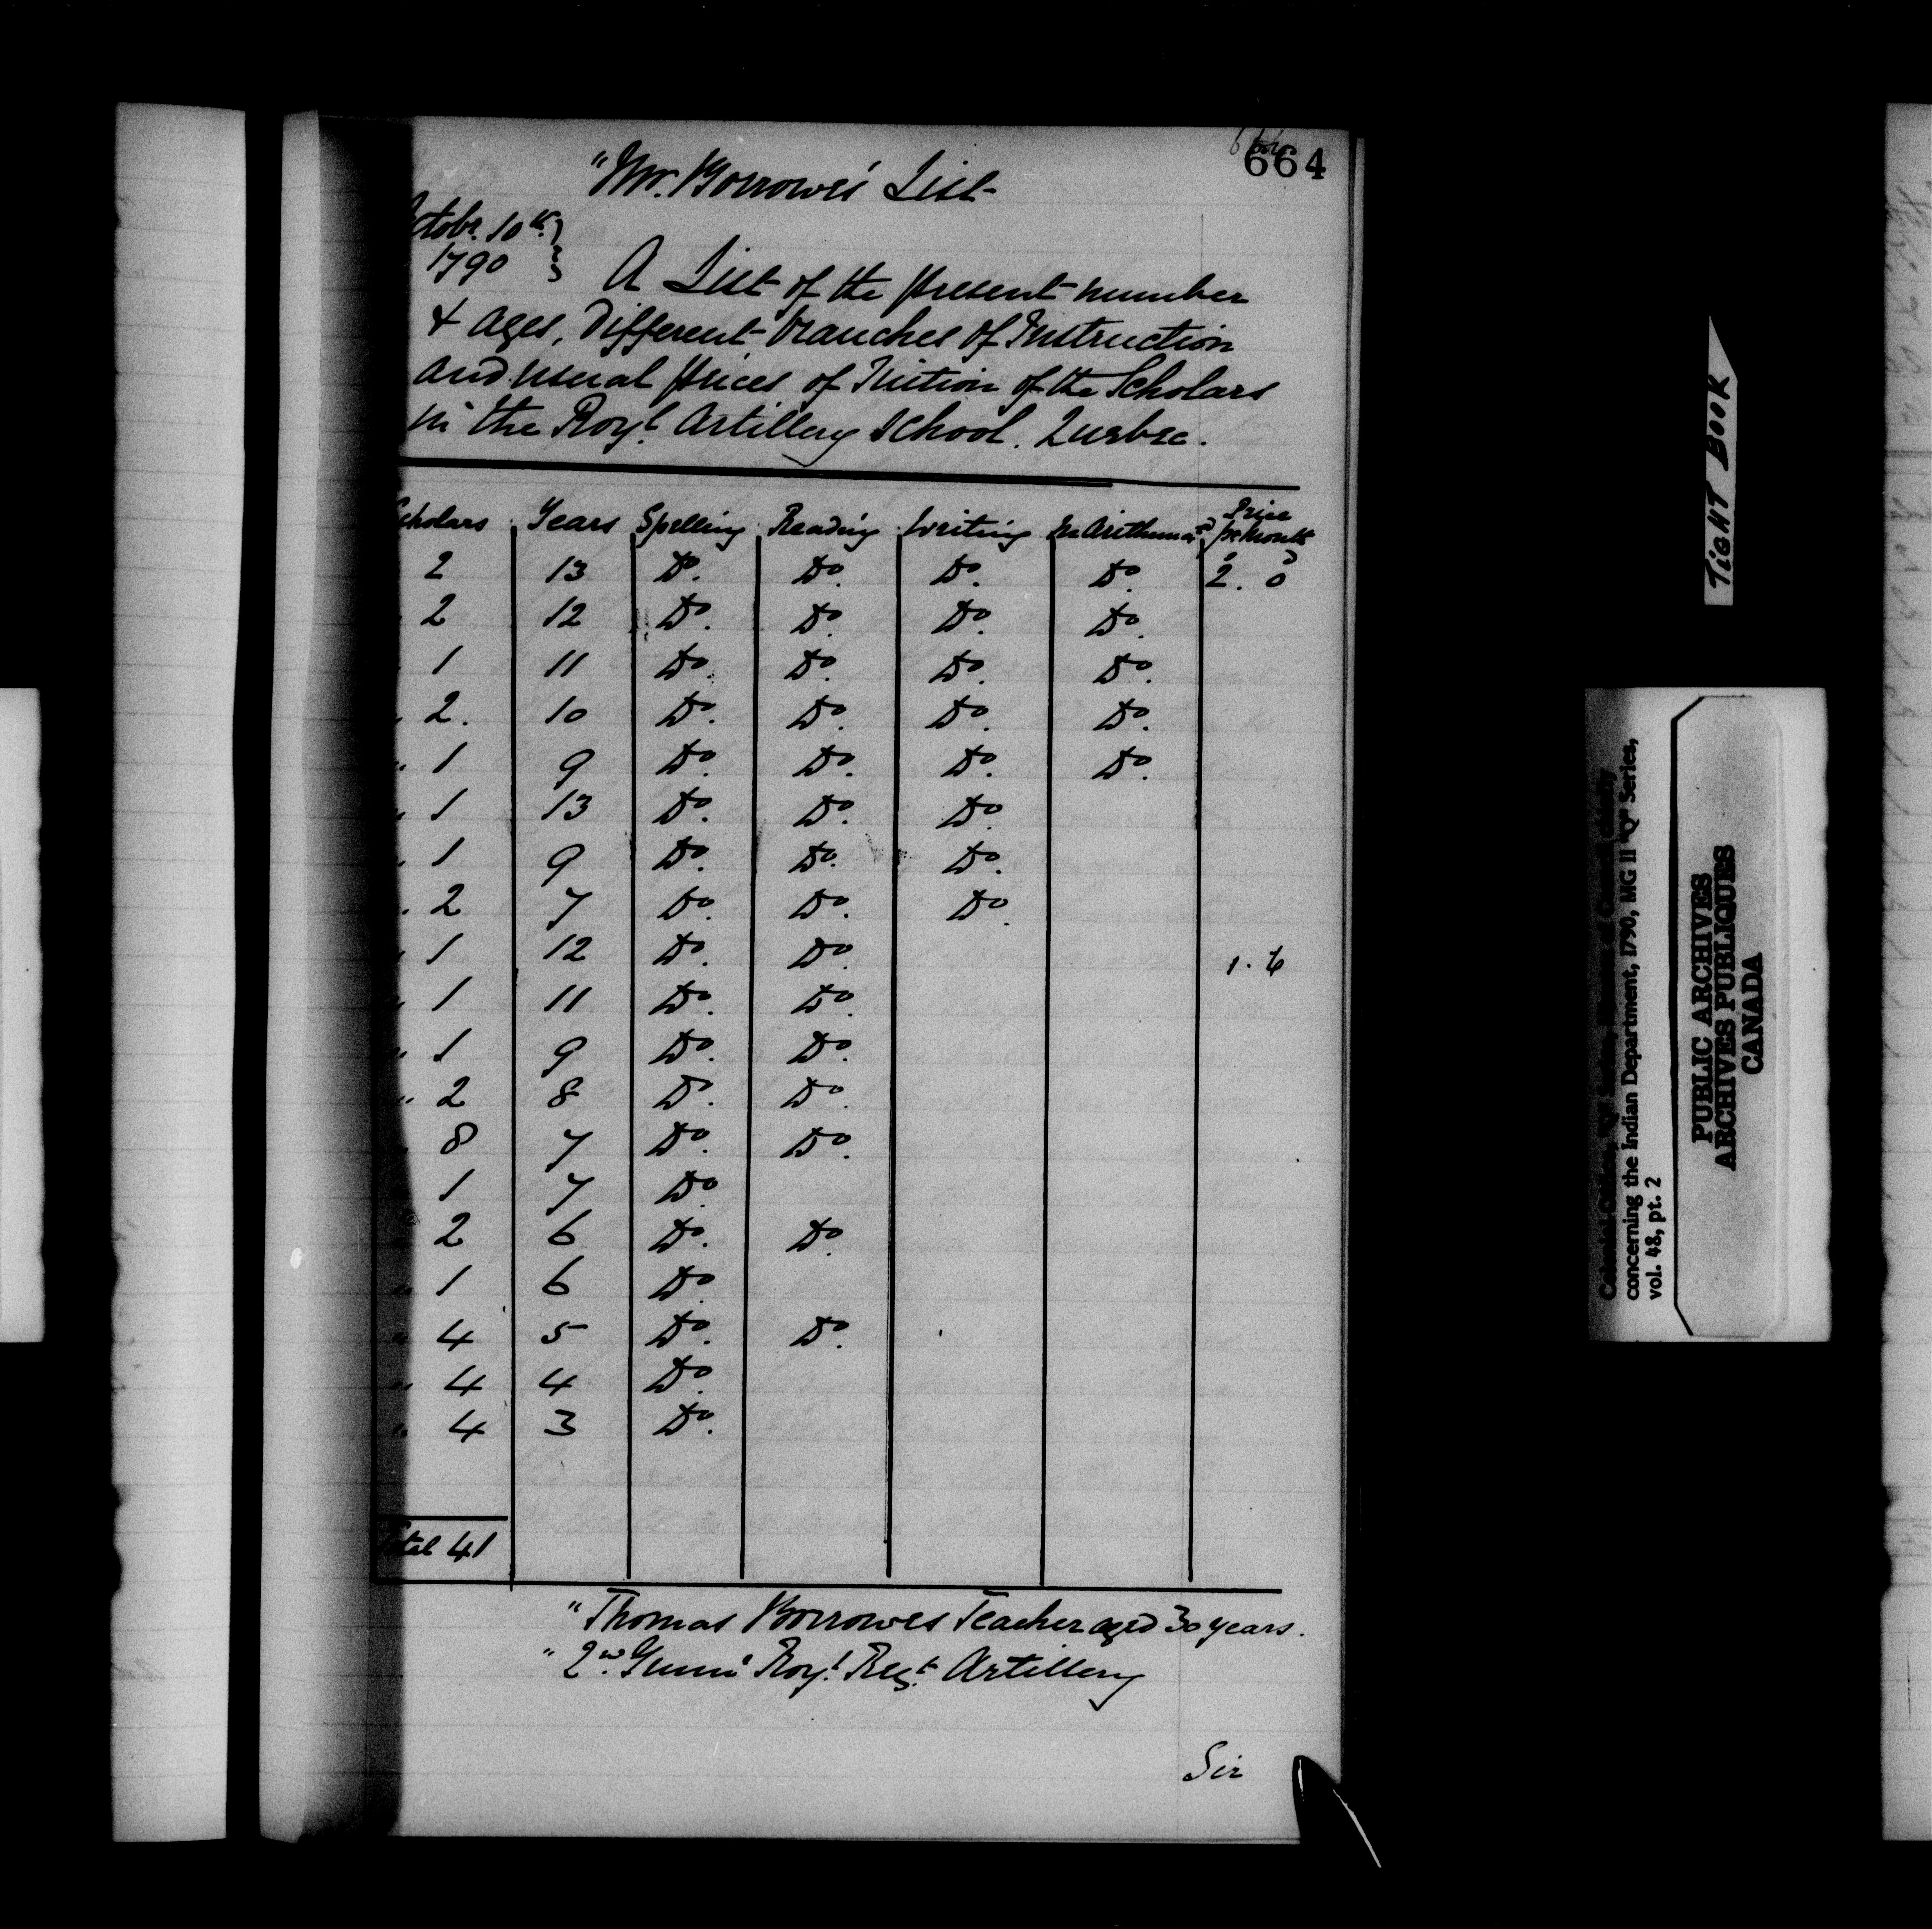 664
"Mr. Borrowes' List
Octobr. 10th
1790
A List of the present number
& ages, Different branches of Instruction
and usual prices of Tuition of the Scholars
in the Royl. Artillery School. Quebec.
Scholars Years Spelling Reading Writing Price pr Month
2 13 Do. Do. Do. Do. 2. 0
2 12 Do. Do. Do. Do.
1 11 Do. Do. Do. Do.
2. 10 Do. Do. Do. Do.
" 1 9 Do. Do. Do. Do.
" 1 13 Do. Do. Do.
" 1 9 Do. Do. Do.
" 2 7 Do. Do. Do.
" 1 12 Do. Do. 1. 6
" 1 11 Do. Do.
" 1 9 Do. Do.
" 2 8 Do. Do.
8 7 Do. Do.
1 7 Do.
2 6 Do. Do.
" 1 6 Do.
" 4 5 Do. Do.
" 4 4 Do.
" 4 3 Do.
Total 41
"Thomas Borrowes Teacher aged 30 years.
" 2nd. Royl. Regt. Artillery
Sir
TIGHT BOOK
concerning the Indian Department, 1790, MG 11 "Q" Series,
vol. 48, pt. 2
PUBLIC ARCHIVES
ARCHIVES PUBLIQUES
CANADA